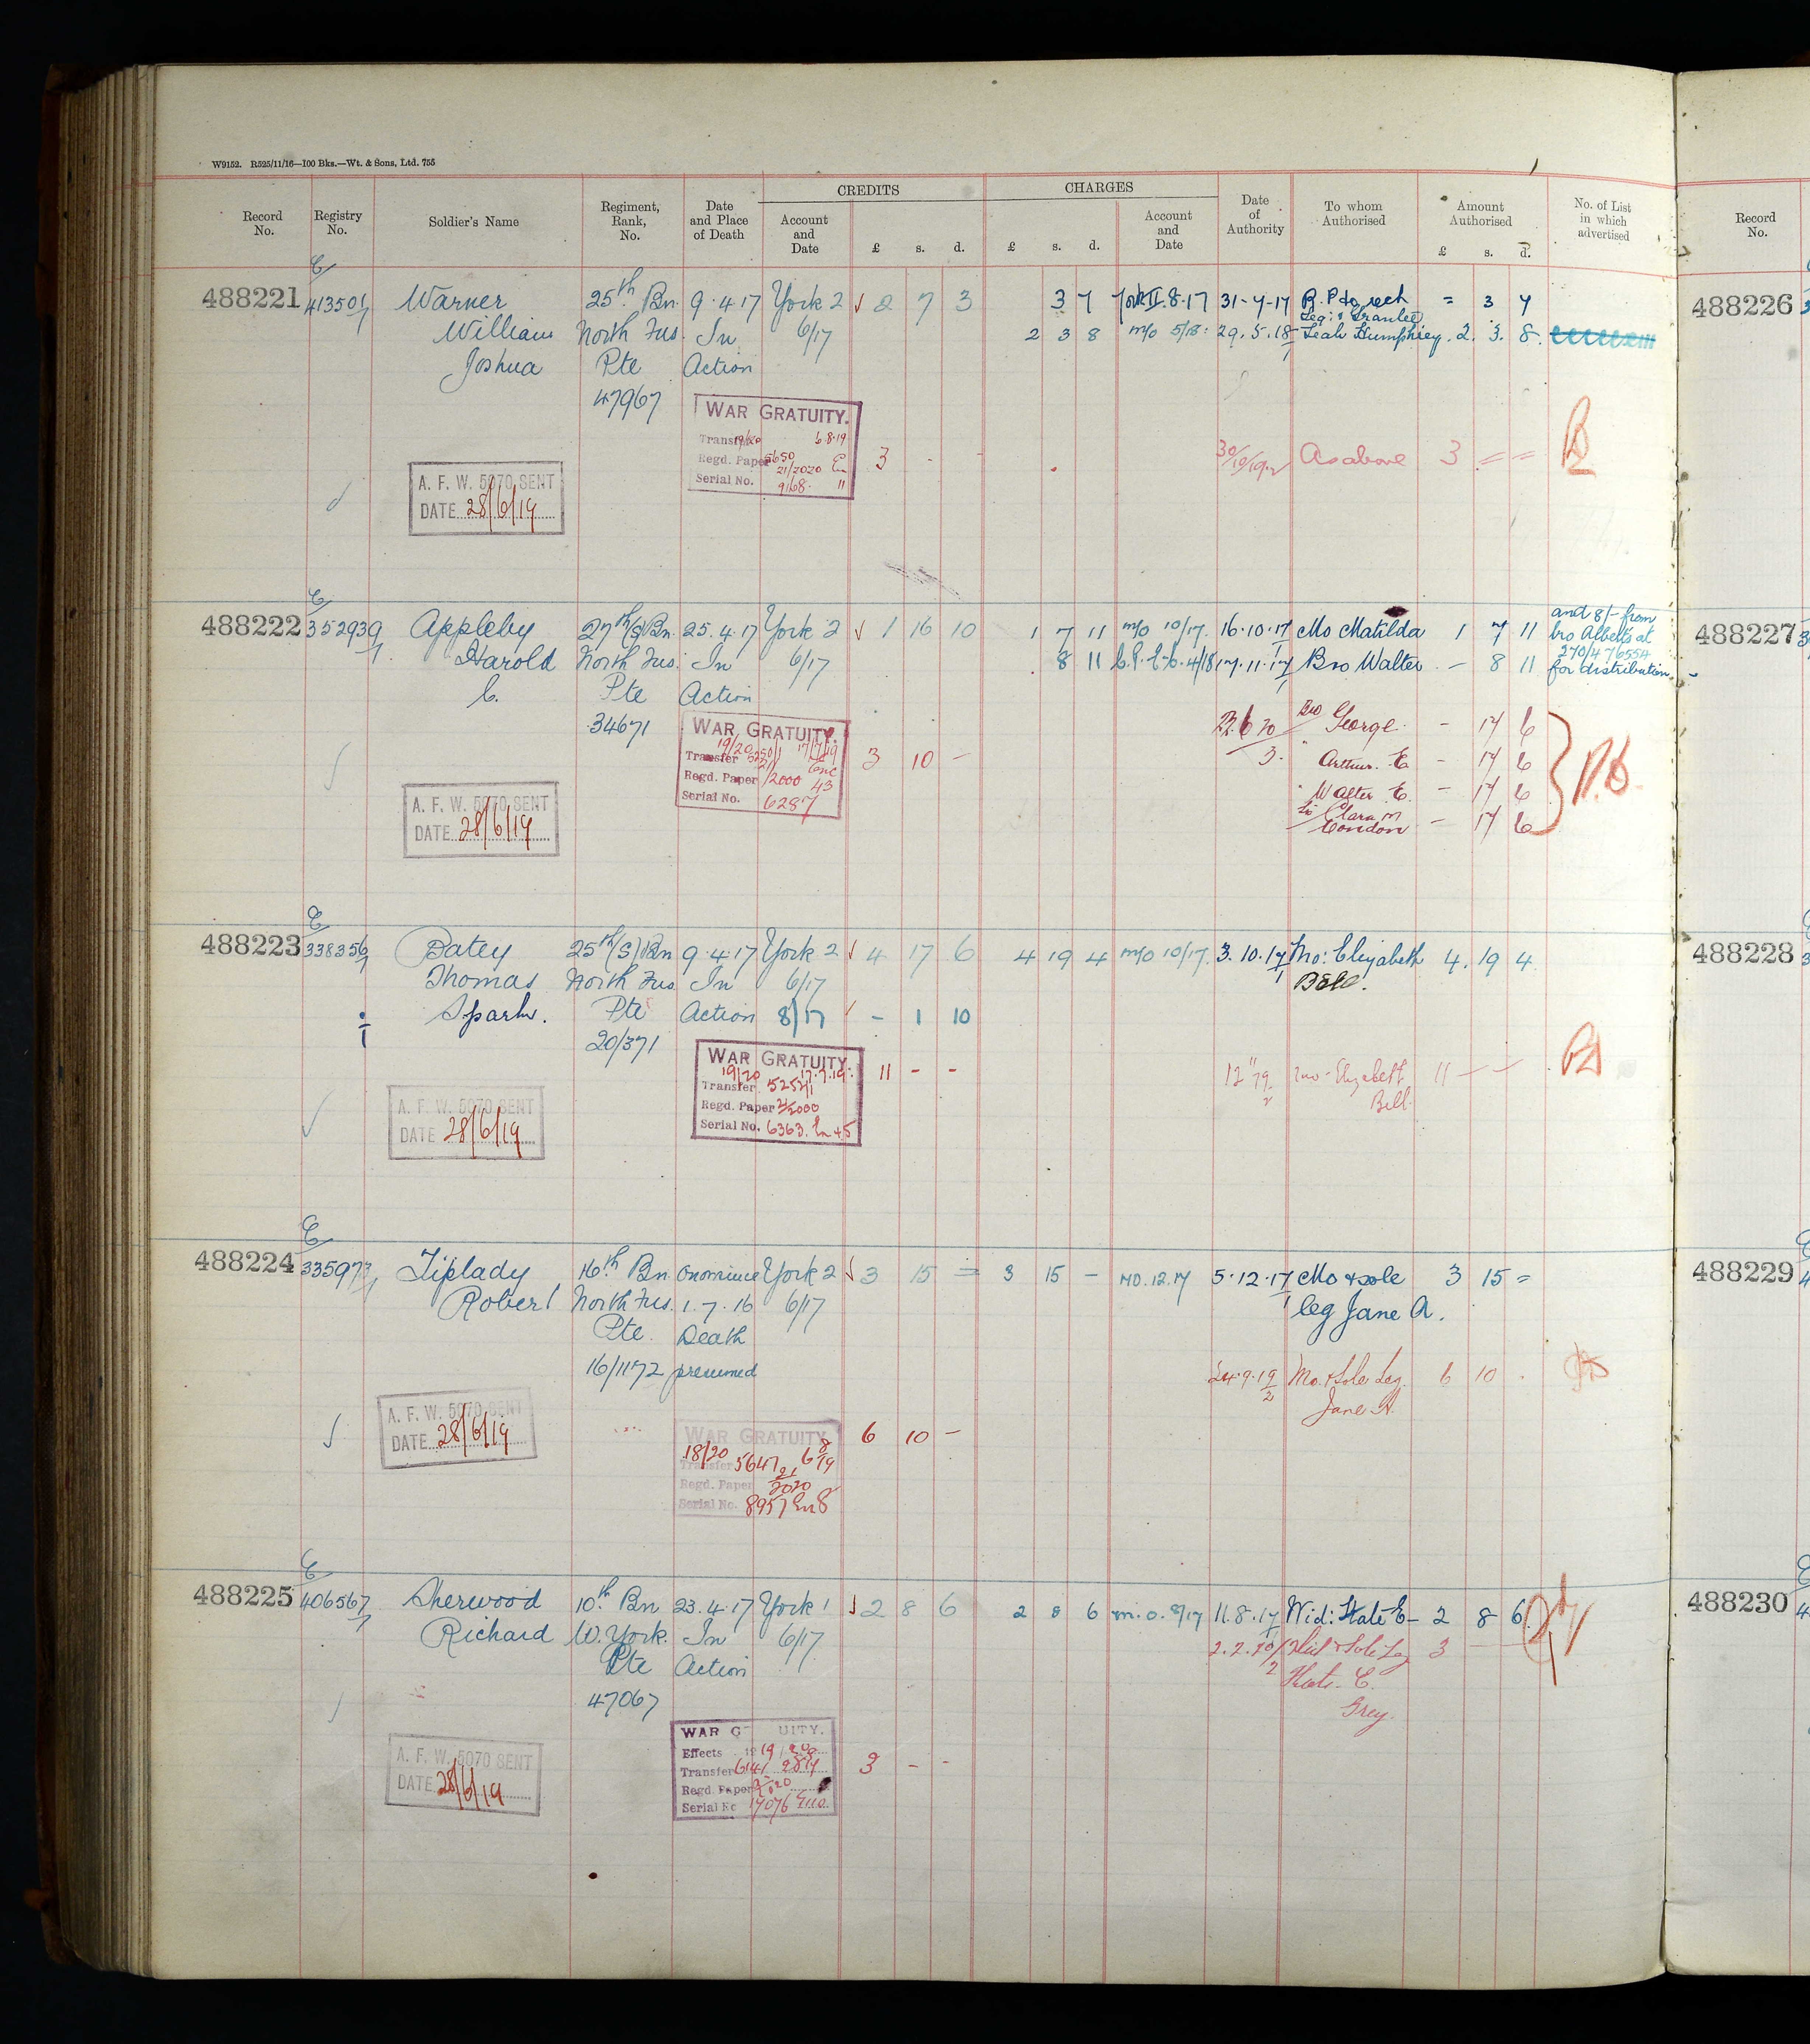 W9152. R525/11/16—100 Bks.—Wt. & Sons, Ltd. 755
CREDITS CHARGES
Record No. Registry No. Soldier's Name Regiment, Rank, No. Date and Place of Death Account and Date £ s. d. £ s. d. Account and Date Date of Authority To whom Authorised Amount Authorised £ s. d. No. of List in which advertised Record No.
E/
488221 413501/1 Warner 25th Bn. 9.4.17 York 2 2 7 3 3 7 York II. 8.17 31-7-17 R. P. to rech = 3 7 488226
Leg: & Grantee
William North Fus. In 6/17 2 3 8 m/o 5/18: 29.5.18 Leah Humphrey. 2. 3. 8.
Joshua Pte Action
47967
WAR GRATUITY.
Transfer 19/20 6.8.19
Regd. Paper 5650 21/2020
Serial No. 9168 11
3 - - 30/10/19 As above 3 = =
A. F. W. 5070 SENT
DATE 28/6/19
E/
488222 352939/1 Appleby 27th (S) Bn. 25.4.17 York 2 1 16 10 1 7 11 m/o 10/17. 16.10.17 Mo Matilda 1 7 11 488227
and 8/- from
bro Albert's at
270/476554
for distribution
Harold North Fus. In 6/17 8 11 4/18 17.11.17 Bro Walter - 8 11
C. Pte Action
34671
WAR GRATUITY.
19/20 17/7/19
Transfer 5250/1
Regd. Paper 21/2000 43
Serial No. 6287
3 10 -
23.6.20 Bro George - 17 6
3. " Arthur. E - 17 6
" Walter E. - 17 6
Si Clara M
London - 17 6
A. F. W. 5070 SENT
DATE 28/6/19
E/
488223 338356/1 Batey 25th (S) Bn 9.4.17 York 2 4 17 6 4 19 4 m/o 10/17. 3.10.17 Mo: Elizabeth 4. 19 4 488228
Thomas North Fus In 6/17 Bell.
Spark. Pte Action 8/17 - 1 10
20/371
WAR GRATUITY.
19/20 17.7.19
Transfer 5252/1
Regd. Paper 21/2000
Serial No. 6363. 45
11 - - 12 11 19 mo - Elizabeth 11 - -
Bell.
A. F. W. 5070 SENT
DATE 28/6/19
E/
488224 335973/1 Tiplady 16th Bn On or since York 2 3 15 = 3 15 - MO. 12.17 5.12.17 Mo & sole 3 15 = 488229
Robert North Fus. 1.7.16 6/17 leg Jane A.
Pte. Death
16/1172 presumed
24.9.19 Mo. & Sole Leg. 6 10 .
Jane A.
A. F. W. 5070 SENT
DATE 28/6/19
WAR GRATUITY
18/20 6 8 19
Transfer 5647
Regd. Paper 21/2020
Serial No. 8957 8
6 10 -
E/
488225 406567/1 Sherwood 10th Bn 23.4.17 York 1 2 8 6 2 8 6 m.o. 9/17 11.8.17 Wid: Kate E- 2 8 6 488230
Richard W. York. In 6/17 2.2.20 Wid & Sole Leg 3 - -
Pte Action Kate. E.
47067 Grey.
WAR G UITY.
Effects 19/20
Transfer 6141
Regd. Paper 2020
Serial No 17076
3 - -
A. F. W. 5070 SENT
DATE 28/6/19